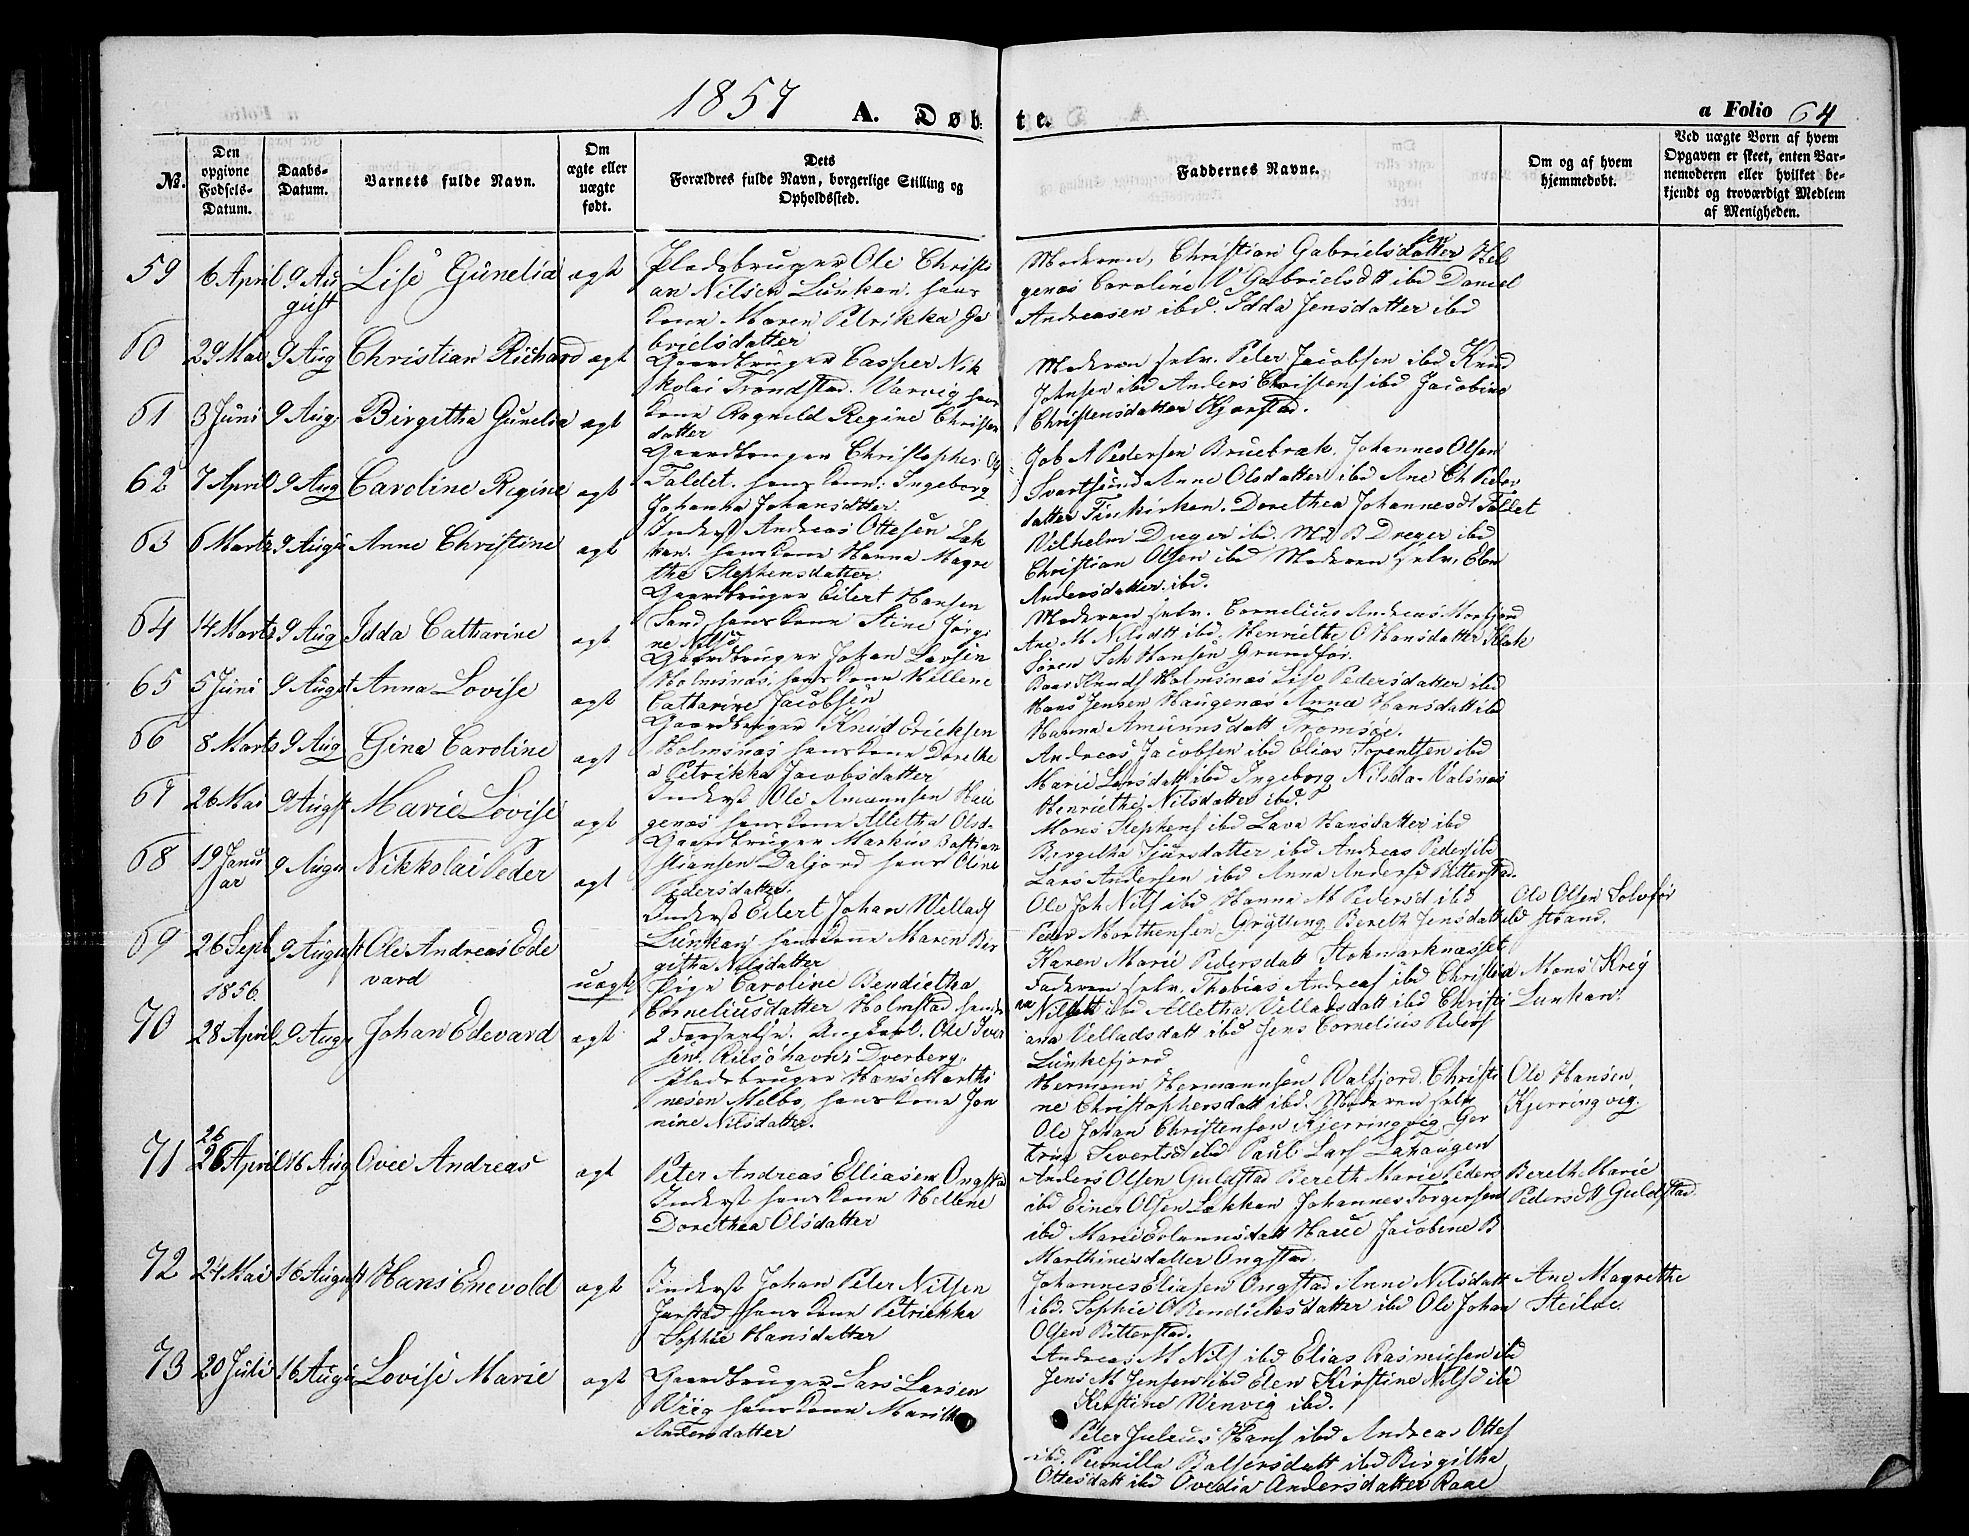 1857 A. Døbte. a Folio 64
No.
Den opgivne Fødsels-Datum.
Daabs-Datum.
Barnets fulde Navn.
Om ægte eller uægte født.
Dets Forældres fulde Navn, borgerlige Stilling og Opholdssted.
Faddernes Navne.
Om og af hvem hjemmedøbt.
Ved uægte Born af hvem Opgaven er skeet, enten Barnemoderen eller hvilket bekjendt og troværdigt Medlem af Menigheden.
59 6 April 9 August Lise Gunelia ægt
Pladsbruger Ole Christi
an Nilsen Lunkan. hans
kone Maren Petrikka Ga
brielsdatter
Moderen, Christian Gabrielsdatter sen Hel
genæs Caroline V Gabrielsdtt ibd Daniel
Andreasen ibd. Idda Jensdatter ibd
60 29 Mai 9 Aug Christian Richard ægt
Gaardbruger Casper Nik
kolai Trondstad. Varvig hans
kone Ragnild Regine Christen
datter
Moderen selv. Peder Jacobsen ibd Knud
Johnsen ibd Anders Christens ibd Jacobine
Christensdatter Kjørstad.
61 3 Juni 9 Aug Birgitha Gunelia ægt
Gaardbruger Christopher Ol
Faldet. hans kone: Ingeborg
Johanna Johansdtter.
Job A Pedersen Bruebræk. Johannes Olsen
Svartsund Anne Olsdatter ibd Ane Ch Peder
datter Finkirken. Dorethea Johannesdt Faldet
62 7 April 9 Aug Caroline Regine ægt
Inderst Andreas Ottesen Lak
kan. hans kone Hanna Magre
the Stephensdatter.
Vilhelm Dreyer ibd. M B Dreyer ibd
Christian Olsen ibd Moderen selv, Elen
Andersdatter ibd.
63 6 Marts 9 Augu Anne Christine ægt
Gaardbruger Eilert Hansen
Sand hans kone Stine Jørgi
ne Nilsd
Moderen selv. Cornelius Andreas Morfjord
Ane M Nilsdtt ibd. Henriethe O Hansdatter Klak
Søren Sch Hansen Grundfør.
64 14 Marts 9 Aug Idda Catharine ægt
Gaardbruger Johan Larsen
Holmsnæs, hans kone Hellene
Catharine Jacobsen
Baar Knuds Holmsnæs Lise Pedersdatter ibd
Hans Jensen Haugenæs Anna Hansdatt ibd
Hanna Amunnsdatt Tromsøe.
65 5 Juni 9 August Anna Lovise ægt
Gaardbruger Knud Ericksen
Holmsnæs hans kone Dorethe
a Petrikka Jacobsdatter
Andreas Jacobsen ibd Elias Lorentsen ibd
Marie Larsdatt ibd Ingeborg Nilsda Valsnæs
Henriethe Nilsdatter ibd.
66 8 Marts 9 Aug Gina Caroline ægt
Inderst Ole Amunnsen Hau
genæs hans kone Alletha Olsd.
Mons Stephens ibd Lava Hansdatter ibd
67 26 Mai 9 August Marie Lovise ægt
Gaardbruger Markus Bastian
stiansen Daljord hans Oline
Pedersdatter.
Birgitha Sjursdatter ibd Andreas Peders ibd
Lars Andersen ibd Anna Andersd Bitterstad.
68 19 Janu
ar 9 Augu Nikkolai Peder ægt
Inderst Eilert Johan Villads
Lunkan, hans kone Maren Bir
githa Nilsdatter
Ole Joh Nils ibd Hanna M Pedersd ibd
Peder Morthensen Grytting. Bereth Jensdatt ibd
Karen Marie Pedersdatt Stokmarknæsset
Ole Olsen Solvfør
strand.
69 26 Sept 1856 9 August Ole Andreas Ede
vard uægt
Pige Caroline Bendietha
Corneliusdatter Holmstad hendes
2 Forseelse. Ungkarl. Ole Iver
sen. Riisøhavn i Dverberg.
Faderen selv. Thobias Andreas ibd Christia
na Nilsdtt ibd Alletha Villadsdatt ibd Christi
ana Velladsdatt ibd Jens Cornelius Peders
Lunkefjord
Mons Kreg
Lunkan.
70 28 April 9 Augu Johan Edevard ægt
Pladsbruger Hans Marthi
nesen Melbo, hans kone Jon
nine Nilsdatter.
Hermann Hermannsen Valfjord. Christi
ne Christophersdatt ibd. Moderen selv
Ole Johan Christensen Kjerringvig Ger
trine Sivertsd ibd Paul Lars Laxaugen
Ole Hansen
Kjerringvig.
71 26 26 April 16 Aug Ovee Andreas ægt
Peter Andreas Elliasen Ongstad
Inderst hans kone Hellene
Dorethea Olsdatter
Anders Olsen Guldstad Bereth Marie Peders
ibd Einer Olsen Lakkan Johannes Torgersen
ibd Marie Erlannsdatt Haue Jacobine B
Marthinisdatter Ongstad.
Bereth Marie
Pedersdtt Guldstad.
72 24 Mai 16 August Hans Enevold ægt
Inderst Johan Peter Nilsen
Jørstad hans kone Petriekka
Sophie Hansdatter
Johannes Eliasen Ongstad Anne Nilsdatt
ibd. Sophie O Bendicksdatter ibd Ole Johan
Olsen Bitterstad.
Ane Magrethe
Steiloe.
73 20 Juli 16 Augu Lovise Marie ægt
Gaardbruger Lars Larsen
Viig hans kone Marith
Andersdatter
Andreas M Nils ibd Elias Rasmusen ibd
Jens M Jensen ibd Elen Kirstine Nilsd ibd
Kirstine Vinvig ibd.
Peter Julius Hans ibd Andreas Ottes
ibd. Pernilla Balsersdatt ibd Birgitha
Ottesdatt ibd Ovedia Andersdatter Raae